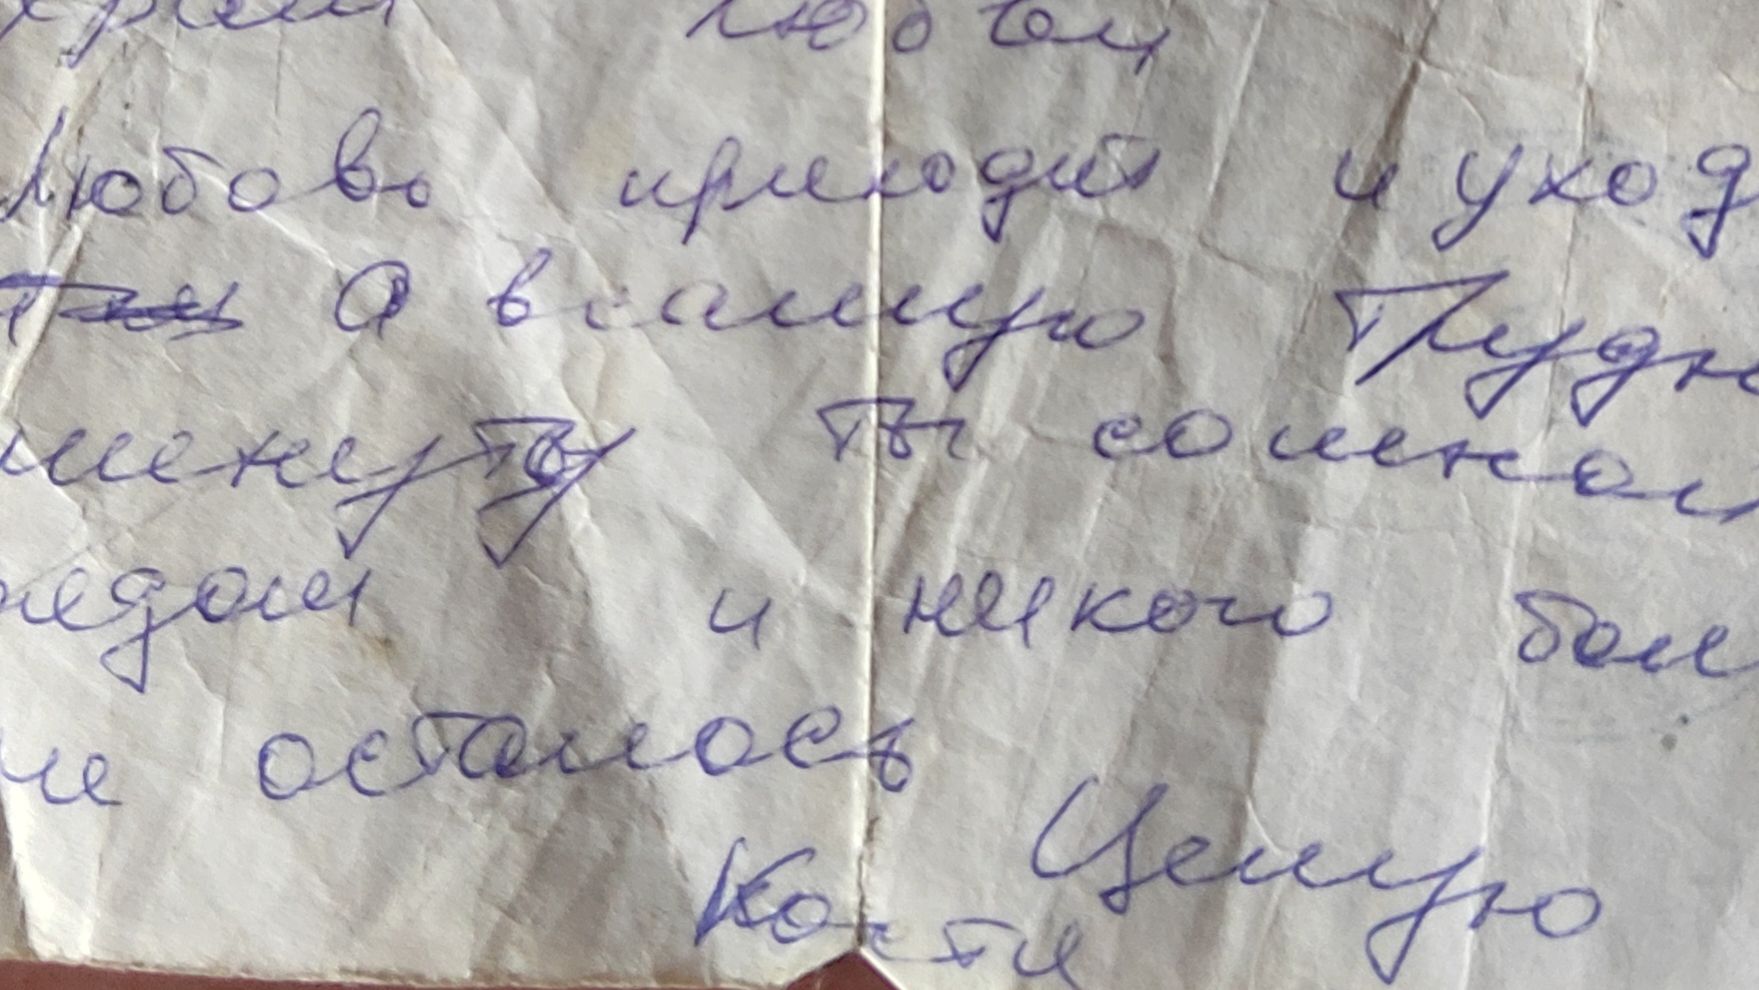 храм любви
Любовь приходит и уход
а в самую Трудн
минуту ты со мной
рядом и никого бол
не осталось
Целую
Костя